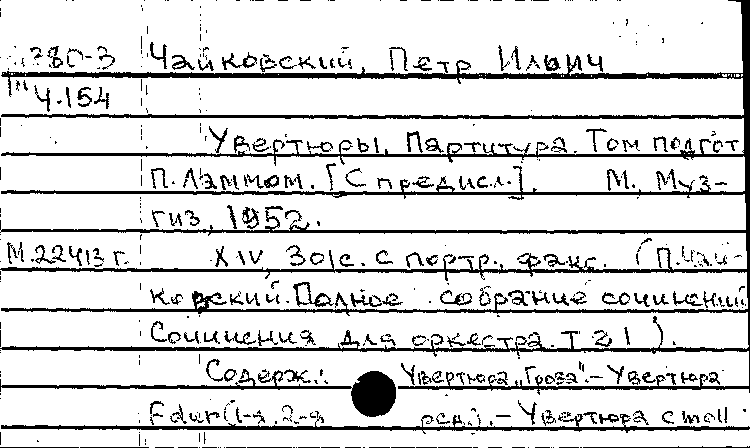 380-3 Чайковский, Петр Ильич
Ч.154
Увертюры. Партитура. Том подгот.
П. Ламмом. [С предисл.]. М., Муз-
гиз, 1952.
М.22413 г. XIV, 301с. с портр., факс. (П. Чай-
ковский. Полное собрание сочинений
Сочинения для оркестра. Т 21).
Содерж.: Увертюра „Гроза". – Увертюра
Fdur (1-я, 2-я ред.). – Увертюра c moll